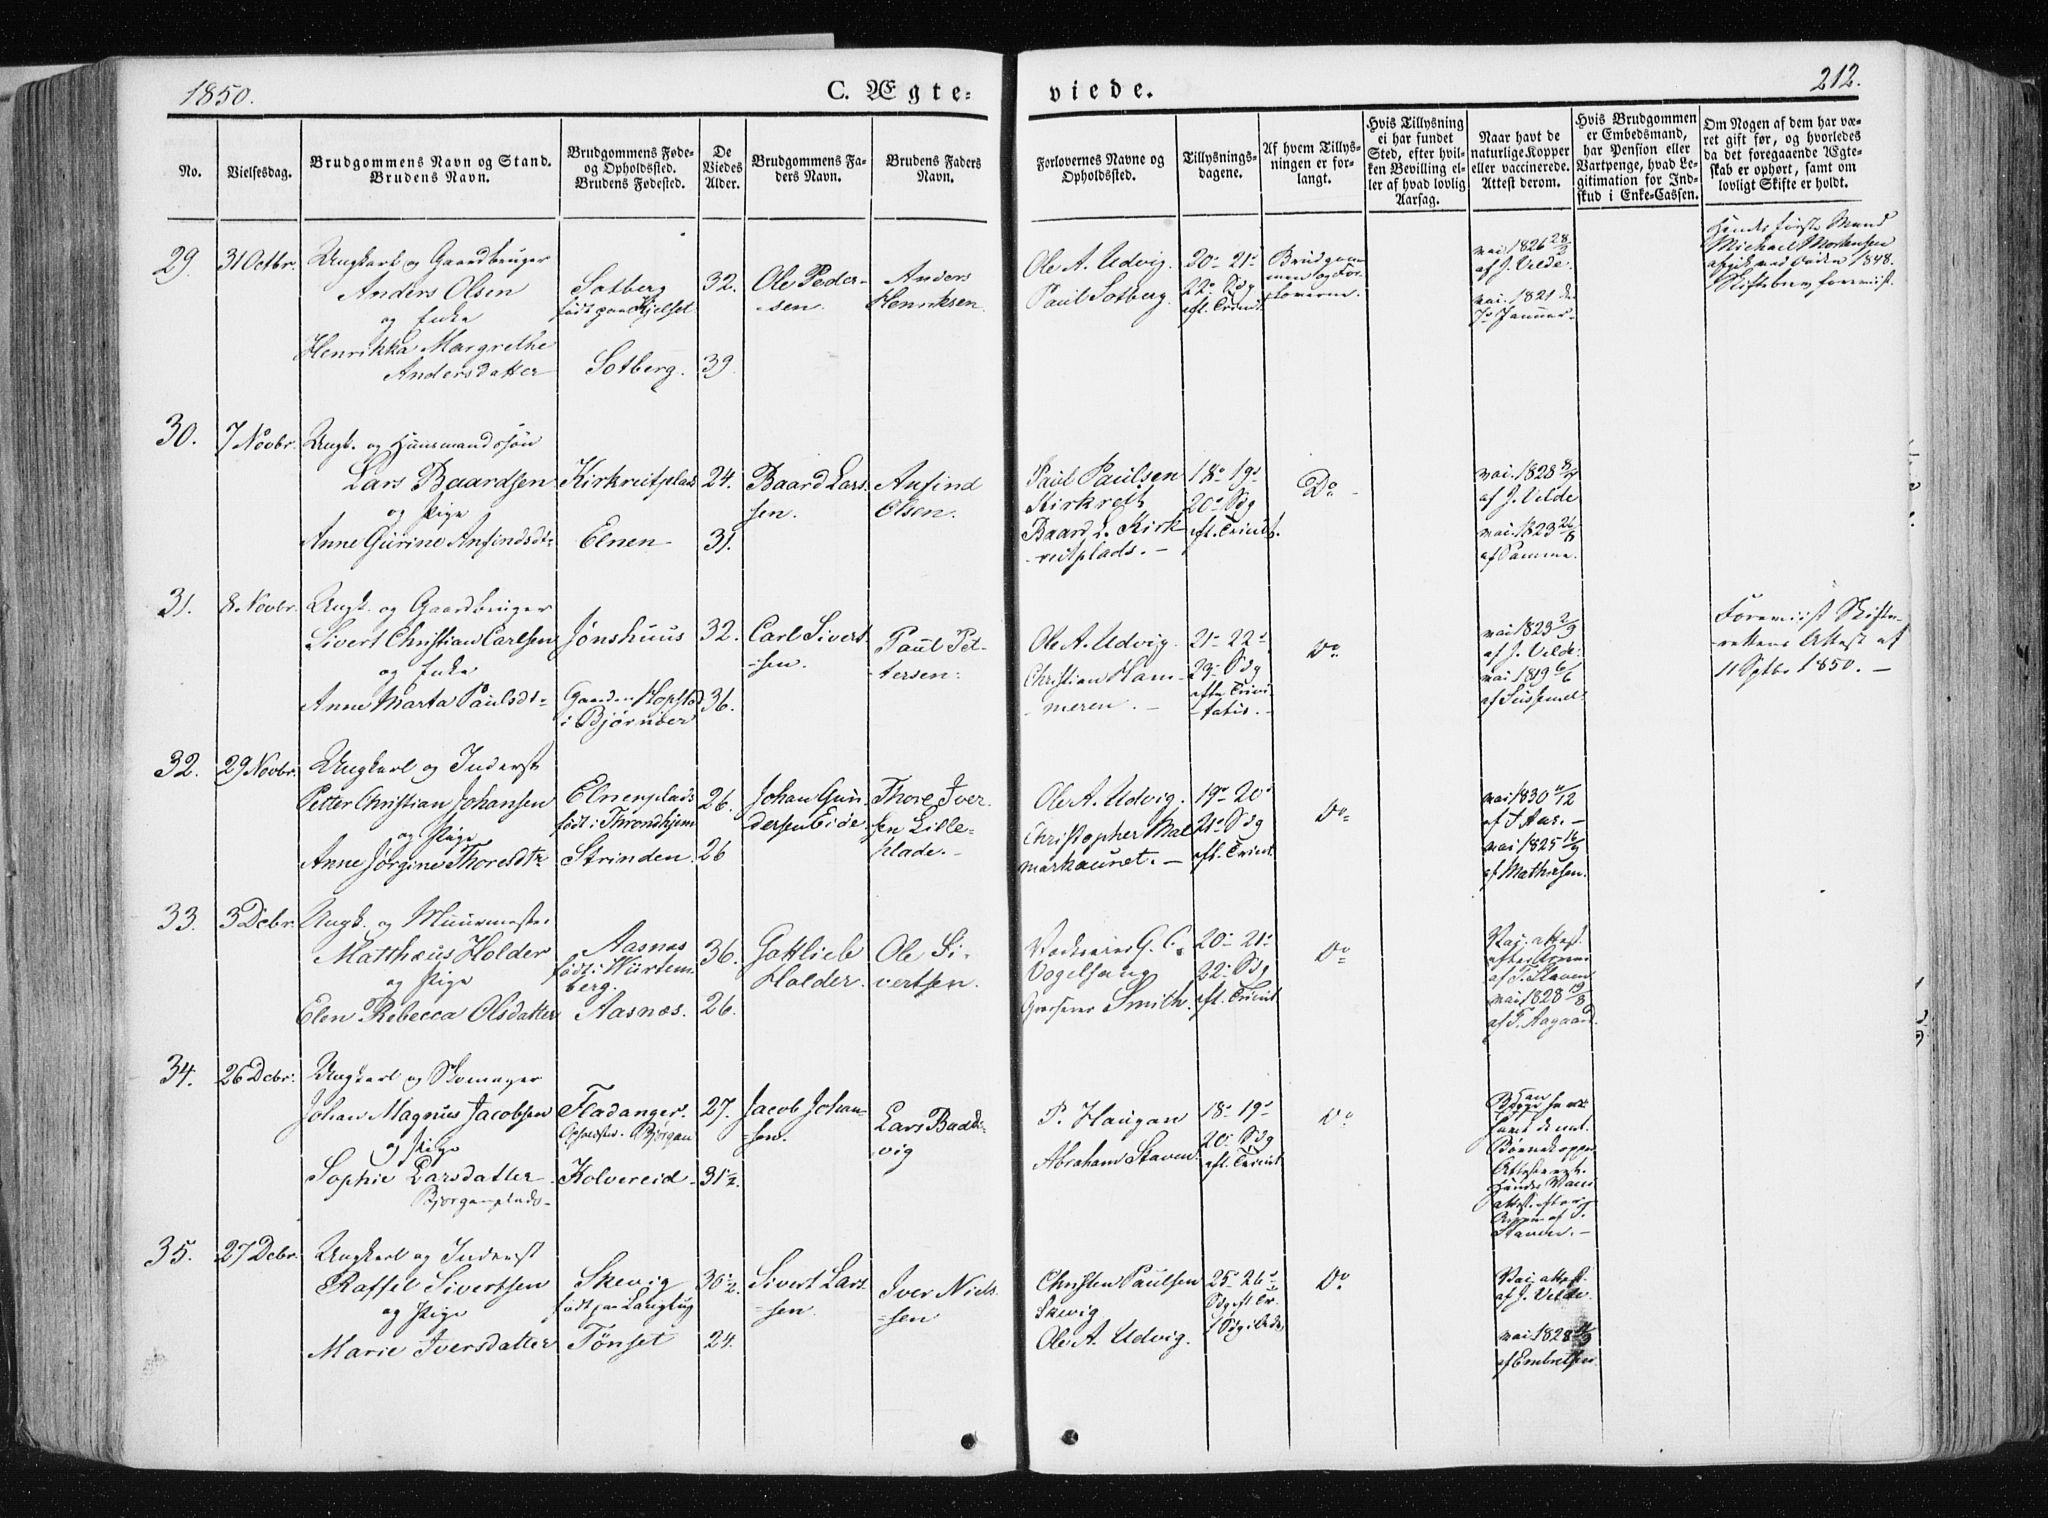 1850.
C. Ægte-
viede.
212.
No.
Vielsesdag.
Brudgommens Navn og Stand.
Brudens Navn.
Brudgommens Føde-
og Opholdssted.
Brudens Fødested.
De
Viedes
Alder.
Brudgommens Fa-
ders Navn.
Brudens Faders
Navn.
Forlovernes Navne og
Opholdssted.
Tillysnings-
dagene.
Af hvem Tillys-
ningen er for-
langt.
Hvis Tillysning
ei har fundet
Sted, efter hvil-
ken Bevilling el-
ler af hvad lovlig
Aarsag.
Naar havt de
naturlige Kopper
eller vaccinerede.
Attest derom.
Hvis Brudgommen
er Embedsmand,
har Pension eller
Vartpenge, hvad Le-
gitimation for Ind-
skud i Enke-Cassen.
Om Nogen af dem har væ-
ret gift før, og hvorledes
da det foregaaende Ægte-
skab er ophørt, samt om
lovligt Skifte er holdt.
29.
31 Octbr.
Ungkarl og Gaardbruger
Anders Olsen
og Enke
Henrikka Margrethe
Andersdatter
Sotberg
født paa Hjelset
Sotberg.
32.
39.
Ole Peder-
sen.
Anders
Henriksen.
Ole A. Udvig.
Paul Sotberg.
20de 21de
22de Sdg
eft. Trinit.
Brudgom-
men og For-
loverne.
vai. 1826 28/3
af J. Velde.
vai. 1821 d.
7de Januar.
Hendes første Mand
Michael Mortensen
afgik ved Døden 1848.
Skiftebrev foreviist.
30.
7 Novbr.
Ungk. og Huusmandssøn
Lars Baardsen
og Pige
Anne Gurine Anfindsdtr
Kirkreitplads
Elnen
24.
31.
Baard Lars-
sen.
Anfind
Olsen.
Paul Paulsen
Kirkreit
Baard L. Kirk-
reitplads.
18de 19de
20de Sdg
eft. Trinit.
Do
vai. 1828 8/7
af J. Velde
vai. 1823 26/8
af Samme.
31.
8 Novbr.
Ungk. og Gaardbruger
Sivert Christian Carlsen
og Enke
Anne Marta Paulsdtr
Jønshuus
Gaarden Hopstad
i Bjørnøer
32.
36.
Carl Sivert-
sen.
Paul Pet-
tersen.
Ole A. Udvig.
Christian Ham-
meren.
21de 22de
23de Sdg
efter Trini-
tatis.
Do
vai 1823 2/9
af J. Velde.
vai 1819 6/6
Foreviist Skifte-
rettens Attest af
11 Sptbr 1850.
32.
29 Novbr.
Ungkarl og Inderst
Petter Christian Johansen
og Pige
Anne Jørgine Thoresdtr
Elnenplads
født i Throndhjem
Strinden.
26.
26
Johan Gun-
dersen Eide.
Thore Iver-
sen Lille-
plads.
Ole A. Udvig.
Christopher Mal-
markaunet.
19de 20de
21de Sdg
eft. Trinit.
Do
vai 1830 11/12
vai 1825 16/9
af Mathiesen.
33.
3 Dcbr.
Ungk. og Muurmester
Matthæus Holder
og Pige
Elen Rebecca Olsdatter
Aasnes
født i Würtem-
berg.
Aasnes.
36.
26.
Gottlieb
Holder.
Ole Si-
vertsen.
G. C.
Vogelsang
Smith.
20de 21de
22de Sdg
eft. Trinit.
Do
Vai. attest.
af T. Staven
vai 1828 19/8
af T. Aagaard.
34.
26 Dcbr.
Ungkarl og Skomager
Johan Magnus Jacobsen
og Pige
Sophie Larsdatter
Bjørganplads.
Fladanger.
Opholdsted. Bjørgan
Kolvereid
27.
31½.
Jacob Johan-
sen.
Lars Badst-
vig
P. Haugan
Abraham Staven.
18de 19de
20de Sdg
eft. Trinit.
Do
35.
27 Dcbr.
Ungkarl og Inderst
Raffel Sivertsen
og Pige
Marie Iversdatter
Skevig
født paa Langtug
Tønset
30½.
24.
Sivert Lars-
sen.
Iver Niels-
sen
Christen Paulsen
Skevig
Ole A. Udvig.
25de 26de
Sdg eft. Tr.
Do
Vai. attest.
af J. Velde.
vai 1828
af Embretsen.